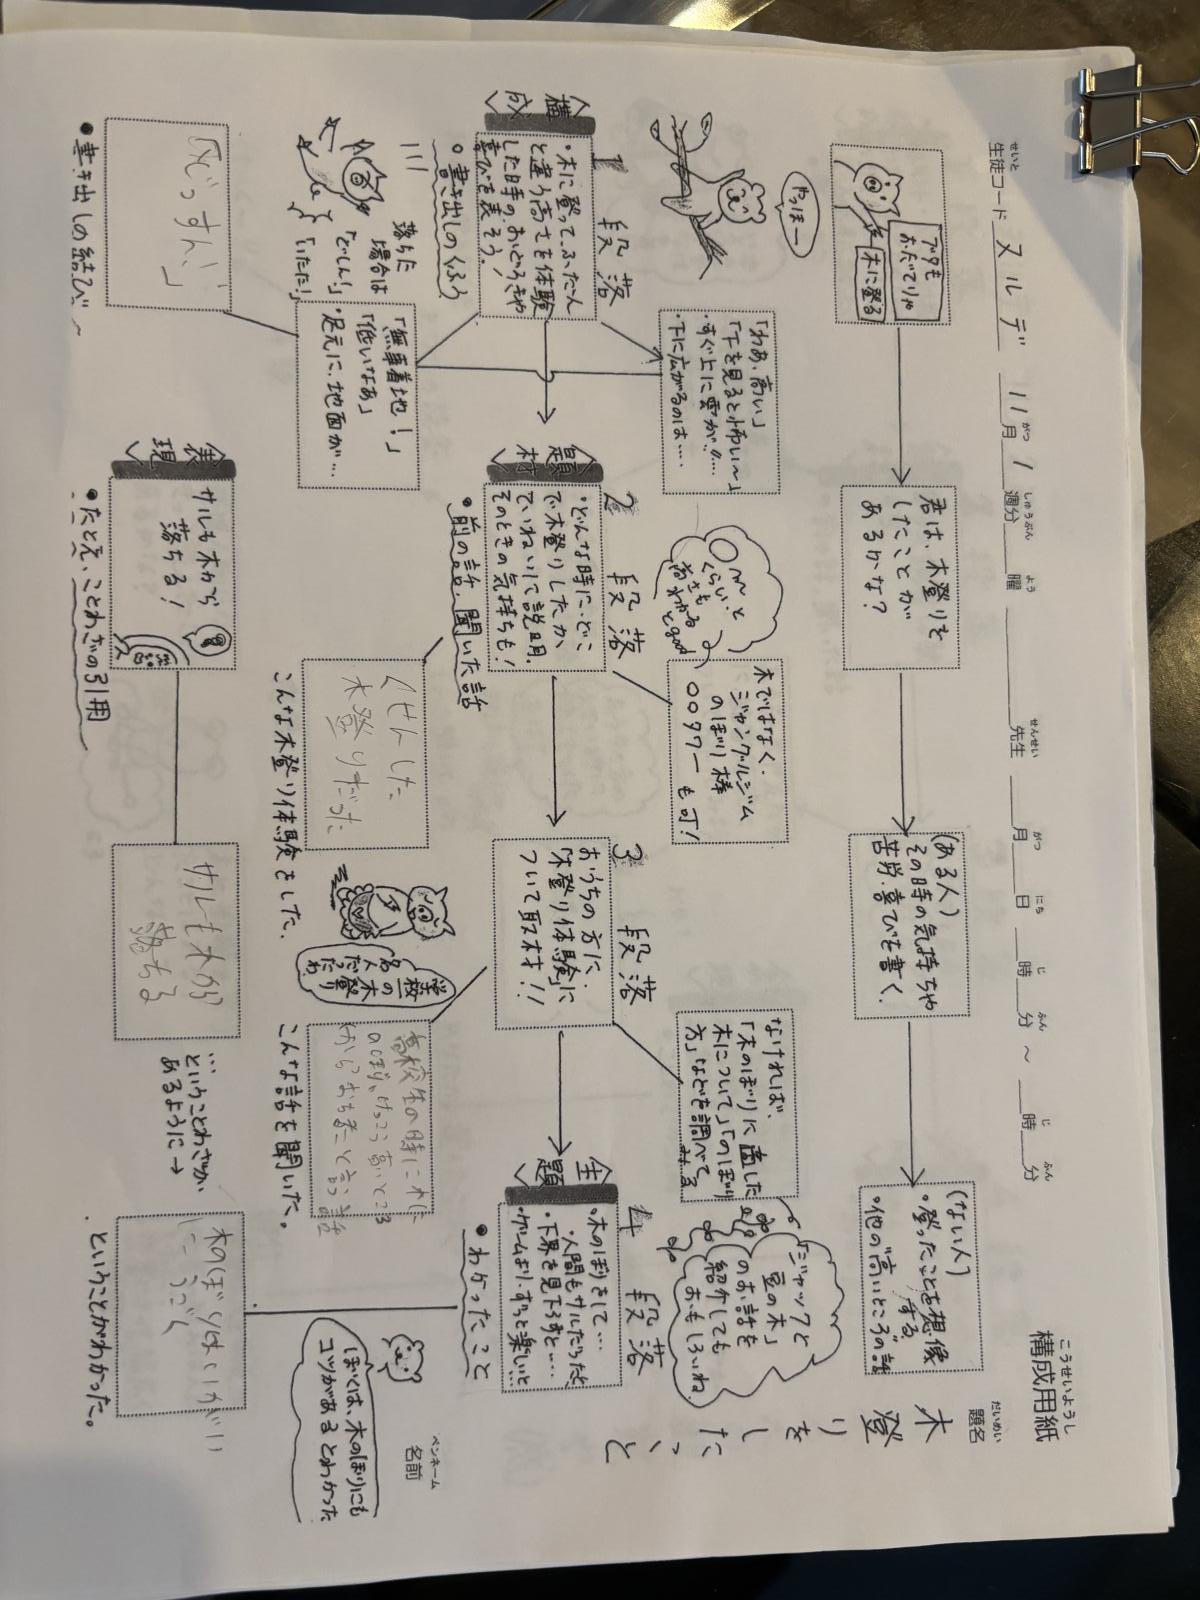 構成用紙
こうせいようし
生徒コード ヌルデ 11月1週分 曜 先生 月 日 時 分 ～ 時 分
せいと
がつ
しゅうぶん
よう
せんせい
がつ
にち
じ
ふん
じ
ふん
題名
だいめい
木登りをしたこと
名前
ペンネーム
ブタも
おだてりゃ
木に登る
君は、木登りを
したことが
あるかな?
(ある人)
その時の気持ちや
苦労・喜びを書く.
(ない人)
・登ったことを想像する
・他の"高いところ"の話
やっほー
「わあ、高い」
「下を見ると怖い〜」
・すぐ上に雲が…
・下に広がるのは…
〇〜〜と
くらい.
高さも
わかる
とgood
木ではなく、
ジャングルジム
のぼり棒
〇〇タワーも可!
なければ、
「木のぼりに適した
木について」「のぼり
方」などを調べてみる
「ジャックと
豆の木」
のお話を
紹介しても
おもしろいね.
1段落
〈構成〉
・木に登って、ふだん
と違う高さを体験
した時のおどろきや
喜びを表そう!
○書き出しの工夫
2段落
〈題材〉
・どんな時に、どこ
で木登りしたか、
ていねいに説明.
そのときの気持ちも!
●前の話、聞いた話
3段落
おうちの方に、
「木登り体験」に
ついて取材!!
4段落
〈主題〉
・木のぼりをして…
・人間もサルだったと、
・下界を見下ろすと…
・ゲームより、ずっと楽しい…と
●わかったこと
落ちた
場合は
「どしん!」
「いたた!」
「無事着地!」
「低いなあ」
・足元に、地面が…
くせんした
木登りだった
こんな木登り体験をした.
学校一
の木登り
名人
だったわ
高校生の時に木に
のぼり、けっこう高いところ
からおちたと言う話
こんな話を聞いた。
ぼくは、木のぼりにも
コツがあるとわかった
「どっすん」
●書き出しの結び
〈表現〉
サルも木から
落ちる!
●たとえ、ことわざの引用
サルも木から
落ちる
…ということわざが
あるように→
木のぼりは
ということがわかった。